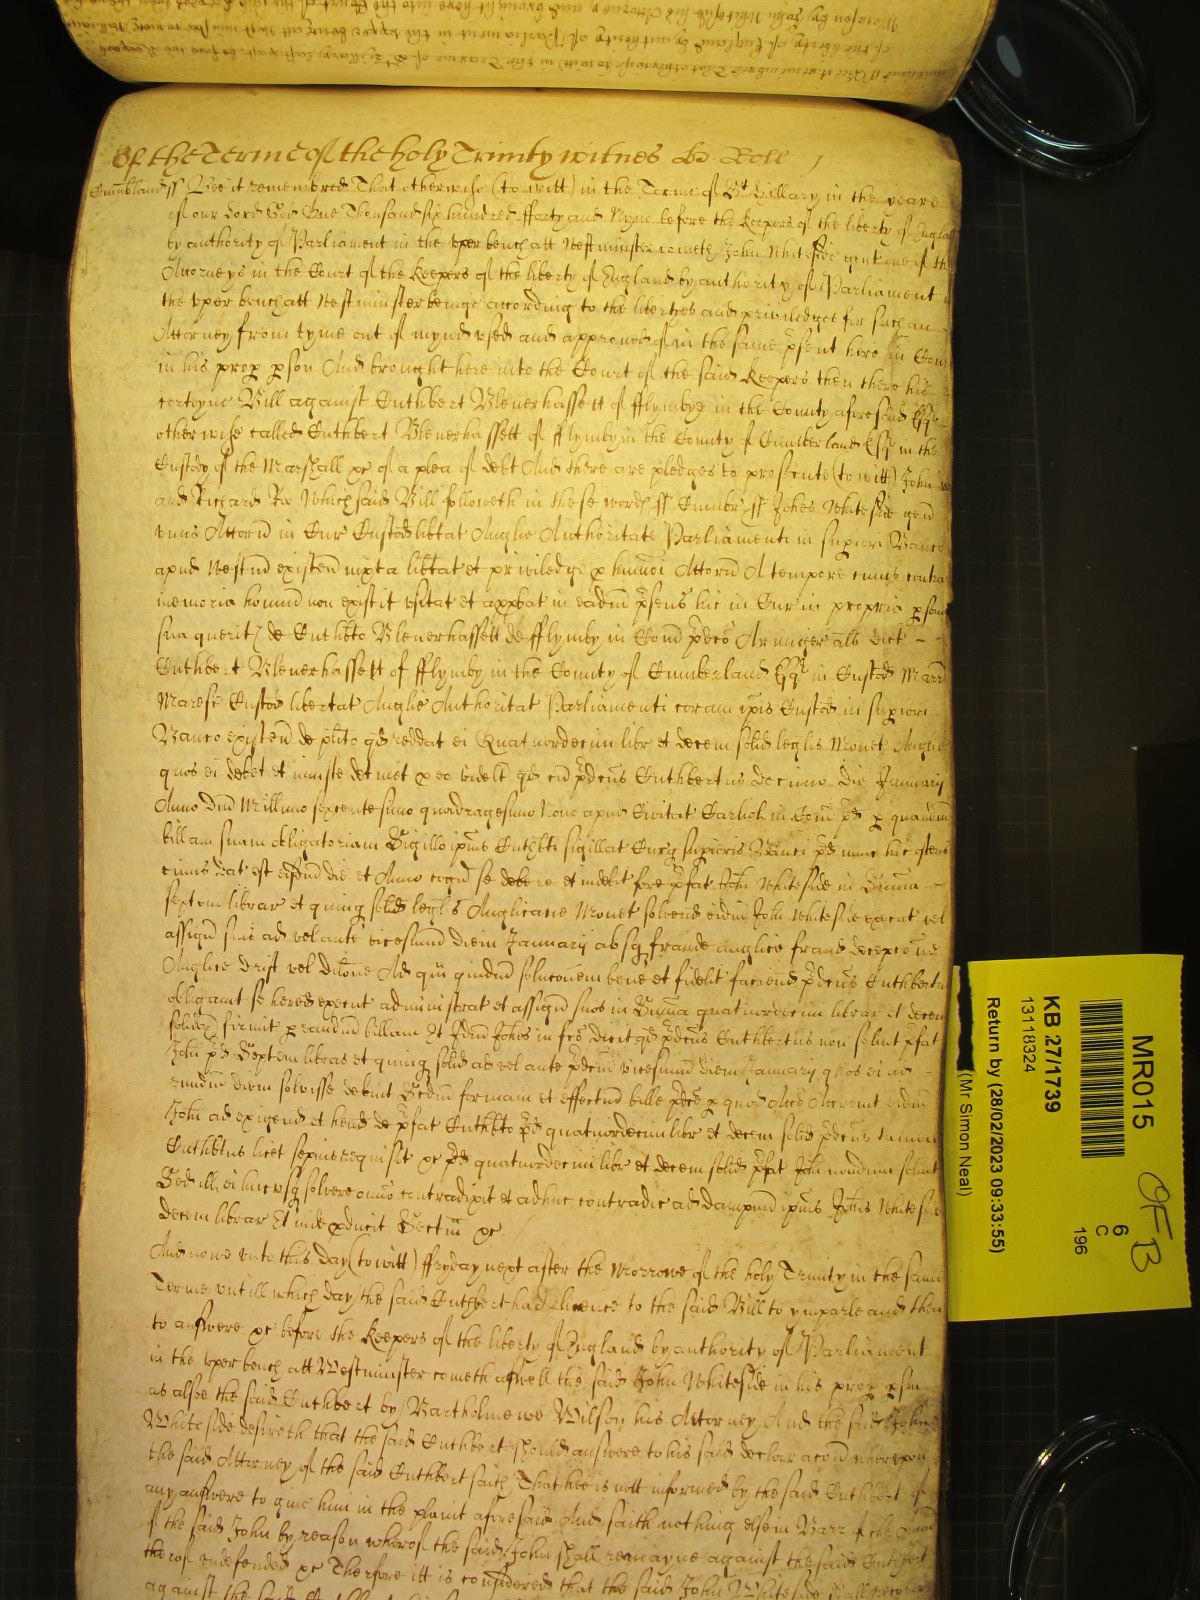 Of the Terme of the holy Trinity witnes H. Roll
Cumbland ss Bee it remembred That otherwise (to witt) in the Terme of St Hillary in the yeare
of our Lord God One Thousand six hundred fforty and Nyne before the Keepers of the liberty of England
by authority of Parliament in the vper bench att Westminster cometh John Whiteside gent one of the
Attorneys in the Court of the Keepers of the liberty of England by authority of Parliament
the vper bench att Westminster beinge according to the libertyes and priviledges for such an
Attorney from tyme out of mynd vsed and approued of in the same psent here in Cour
in his prop pson And brought here into the Court of the said Keepers then there his
certeyne Bill against Cuthbert Blenerhassett of fflymby in the County aforesaid Esqr
otherwise called Cuthbert Blenerhassett of fflymby in the County of Cumberland Esqr in the
Custody of the Marshall &c of a plea of debt And there are pledges to prosecute (to witt) John
and Richard Roe Which said Bill followeth in these words ss Cumbr ss Johes Whiteside gent
vnus Attorn in Cur Custod libtat Anglie Authoritate Parliamenti in supiori Banco
apud Westm existen iuxta libtat et priviledg p humoi Attorn A tempore cuius contra
memoria hominu non existit vsitat et approbat in eadm psens hic in Cur in propria pson
sua querit de Cuthbto Blenerhassett de fflymby in Com pdco Armiger als dict
Cuthbert Blenerhassett of fflymby in the County of Cumberland Esqr in Custod Marr
Maresc Custod libertat Anglie Authoritat Parliamenti coram ipis Custod in supiori
Banco existen de plito qd reddat ei Quatuordecim libr et decem solid leglis Monet Anglie
quos ei debet et iniuste detinet p eo videlt qd cu pdcus Cuthbertus decimo die January
Anno Dni Millimo sexcentesimo quadragesimo Nono apud Civitat Carliol in Com pd p quandm
billam suam obligatoriam Sigillo ipius Cuthbti sigillat Curq supioris Banci pd nunc hic ostens
cuius dat est eisdm die et Anno cogn se debere et indebit fore pfat John Whiteside in Summa
septem librar et quinq solid legls Anglicane Monet solvend eidm John Whiteside execut vel
assign suis ad vel ante vicesimu diem January absq fraude anglice fraud decepcoe
Anglice drift vel dilone Ad qui quidm soluconem bene et fidelit faciend pdcus Cuthbertus
obligavit se hered execut administrat et assign suos in Summa quatuordecim librar et decem
solid firmit p eandm billam Et idm Johes in fco dicit qd pdcus Cuthbertus non soluit pfat
John pd Septem libras et quinq solid ad vel ante pdcm vicesimu diem January quos ei ad
eundm diem solvisse debuit Scdm formam et effectum bille pdce p quod Acco Accreuit eidm
John ad exigend et hend de pfat Cuthbto pd quatuordecim libr et decem solid pdcus tamen
Cuthbtus licet sepius requisit &c pd quatuordecim libr et decem solid pfat John nondum soluit
Sed ill ei hucusq solvere omnio contradixit et adhuc contradic ad dampnu ipius Johis Whiteside
decem librar Et inde pducit Sectm &c
And nowe vnto this day (to witt) ffryday next after the Morrowe of the holy Trinity in the same
Terme vntill which day the said Cuthbert had licence to the said Bill to ymparle and then
to answere &c before the Keepers of the liberty of England by authority of Parliament
in the vper bench att Westminster cometh aswell the said John Whiteside in his prop pson
as alsoe the said Cuthbert by Bartholmewe Wilson his Attorney And the said John
Whiteside desireth that the said Cuthbert should answere to his said declaracon wherevpon
the said Attorney of the said Cuthbert saith That hee is nott informed by the said Cuthbert of
any answere to giue him in the plaint aforesaid And saith nothing else in Barr of the
of the said John by reason wherof the said John shall remayne against the said Cuthbert
therof vndefended &c Therfore itt is considered that the said John Whiteside shall recover
against the said
MR015
KB 27/1739
13118324
Return by (28/02/2023 09:33:55)
(Mr Simon Neal)
6
C
196
OFB